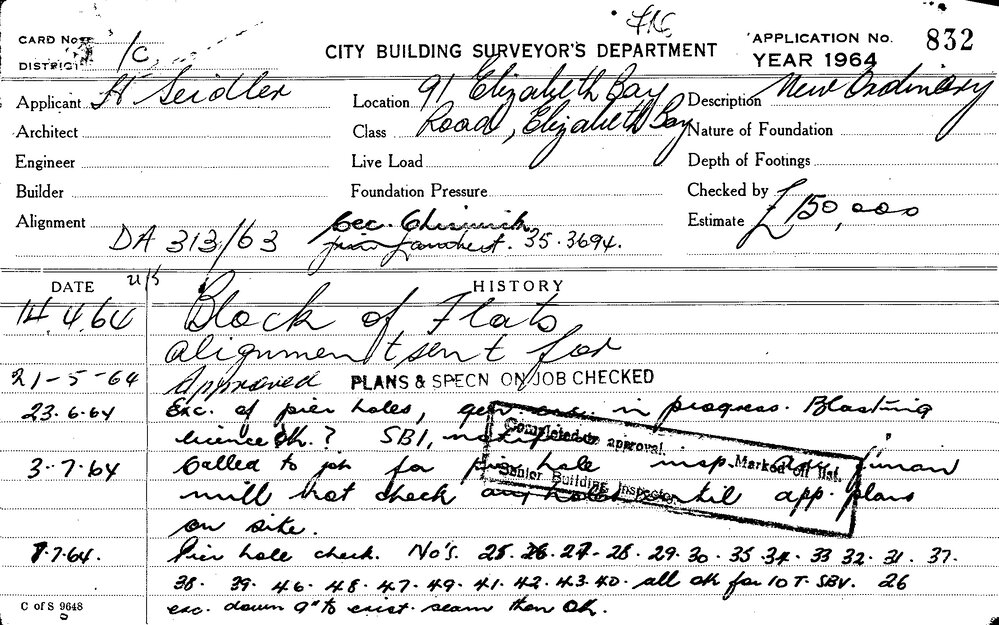 CARD No. 1/C
DISTRICT
CITY BUILDING SURVEYOR'S DEPARTMENT
APPLICATION No. 832
YEAR 1964
Applicant H Seidler
Location 91 Elizabeth Bay
Description New Ordinary
Architect
Class Road, Elizabeth Bay
Nature of Foundation
Engineer
Live Load
Depth of Footings
Builder
Foundation Pressure
Checked by
Alignment
Estimate £150,000
DA 313/63
35.3694.
DATE
HISTORY
14.4.64 Block of Flats
alignment sent for
21-5-64 Approved PLANS & SPECN ON JOB CHECKED
23.6.64 Exc. of pier holes, gen. exc. in progress. Blasting
licence Ok.? SB1,
Completed to approval.
Marked off list.
Senior Building Inspector.
3.7.64 Called to job for pier hole insp.
will not check any holes until app. plans
on site.
7.7.64. Pier hole check. No's. 25. 26. 27. 28. 29. 30. 35. 34. 33 32. 31. 37.
38. 39. 46. 48. 47. 49. 41. 42. 43. 40. all ok for 10T. SBV. 26
exc. down 9" to exist. seam then Ok.
C of S 9648